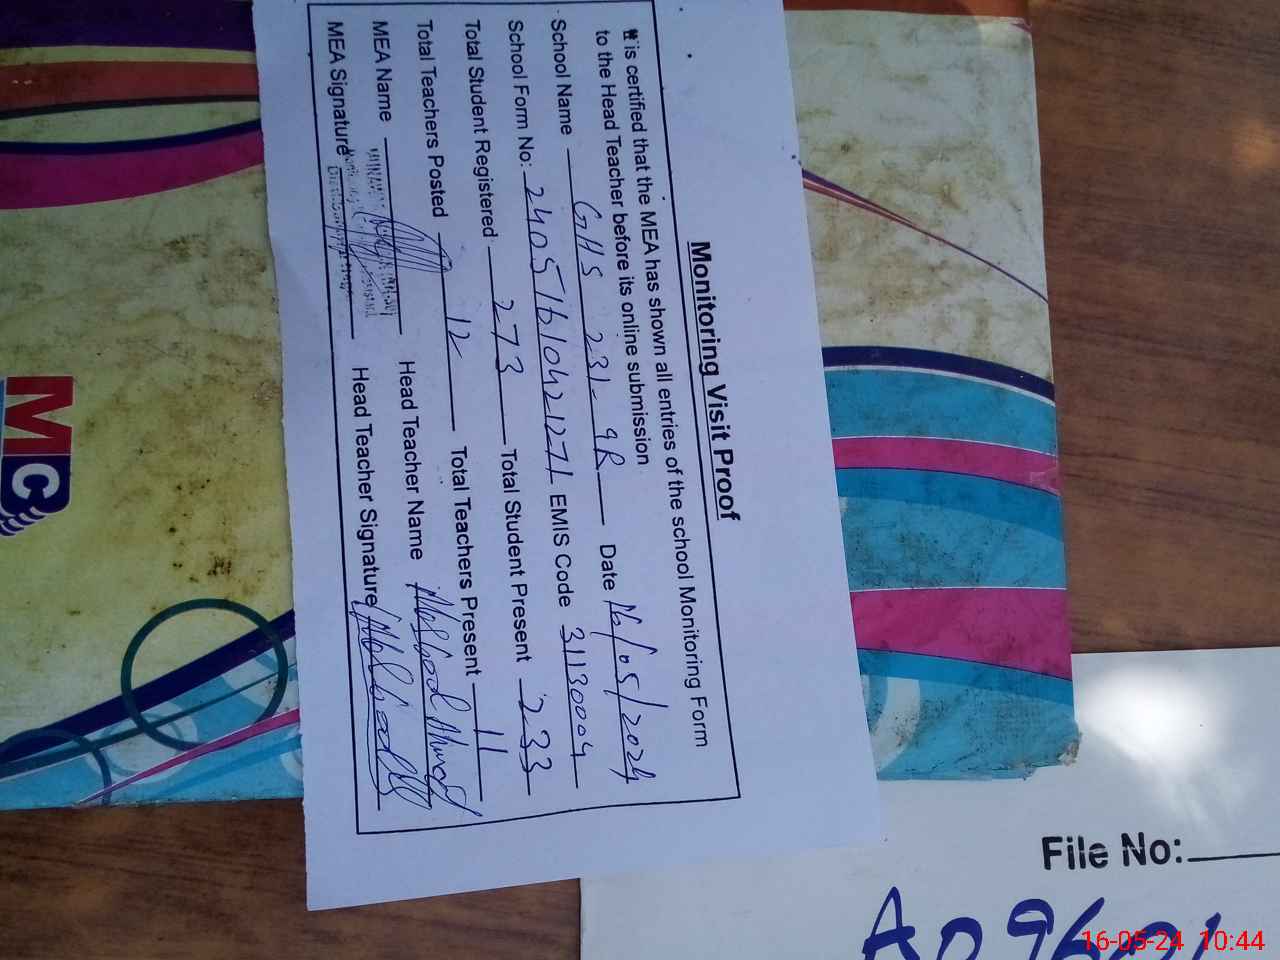 Monitoring Visit Proof
It is certified that the MEA has shown all entries of the school Monitoring Form
to the Head Teacher before its online submission
School Name GHS 231-9R Date 16/05/2024
School Form No: 24051610421271 EMIS Code 31130004
Total Student Registered 273 Total Student Present 233
Total Teachers Posted 12 Total Teachers Present 11
MEA Name Head Teacher Name Ahmed
MEA Signature Head Teacher Signature
MC
File No:
16-05-24 10:44